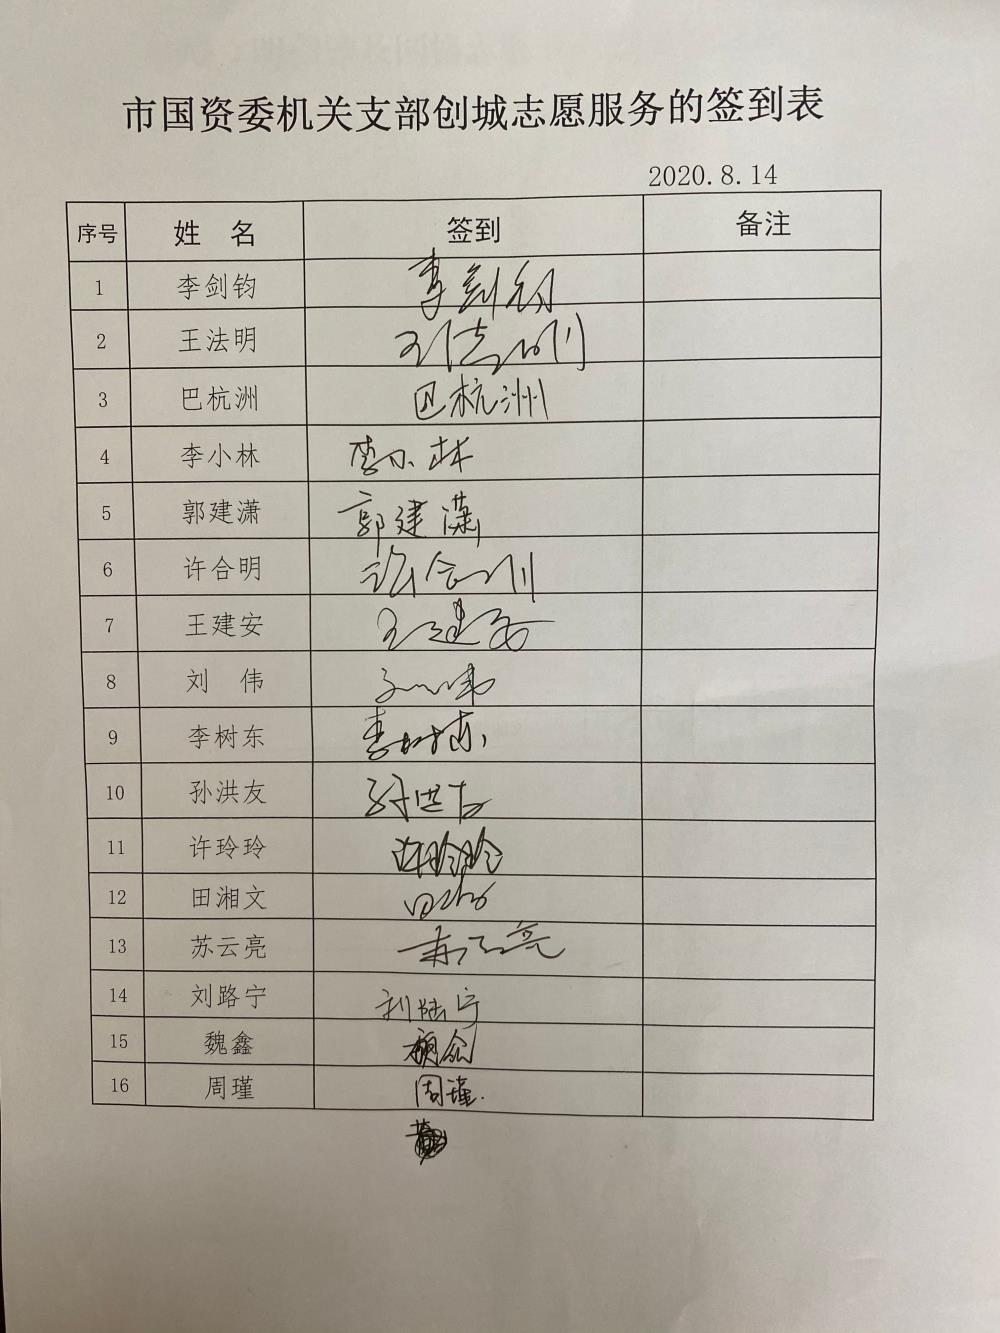 市国资委机关支部创城志愿服务的签到表
2020.8.14
序号 姓 名 签到 备注
1 李剑钧 李剑钧
2 王法明 王法明
3 巴杭洲 巴杭洲
4 李小林 李小林
5 郭建潇 郭建潇
6 许合明 许合明
7 王建安 王建安
8 刘 伟 刘伟
9 李树东 李树东
10 孙洪友 孙洪友
11 许玲玲 许玲玲
12 田湘文 田
13 苏云亮 苏云亮
14 刘路宁 刘路宁
15 魏鑫 魏鑫
16 周瑾 周瑾.